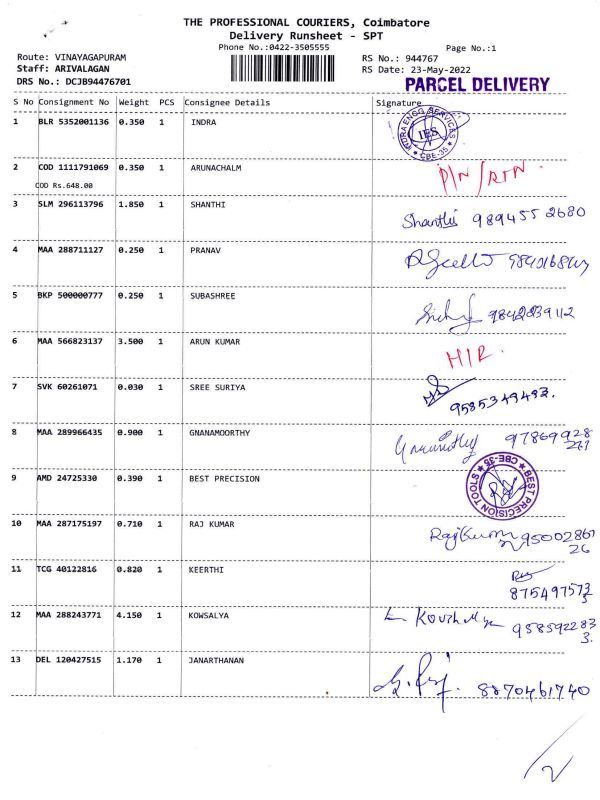 THE PROFESSIONAL COURIERS, Coimbatore
Delivery Runsheet - SPT
Phone No.:0422-3505555
Page No.:1
Route: VINAYAGAPURAM
RS No.: 944767
Staff: ARIVALAGAN
RS Date: 23-May-2022
DRS No.: DCJB94476701
PARCEL DELIVERY
S No Consignment No Weight PCS Consignee Details Signature
1 BLR 5352001136 0.350 1 INDRA
INDRA ENGG SERVICES IES CBE-35
2 COD 1111791069 0.350 1 ARUNACHALM P/N/RTN.
COD Rs.648.00
3 SLM 296113796 1.850 1 SHANTHI Shanthi 9894552680
4 MAA 288711127 0.250 1 PRANAV
5 BKP 500000777 0.250 1 SUBASHREE 9842839112
6 MAA 566823137 3.500 1 ARUN KUMAR H/R.
7 SVK 60261071 0.030 1 SREE SURIYA 9585349493.
8 MAA 289966435 0.900 1 GNANAMOORTHY 97869928
271
9 AMD 24725330 0.390 1 BEST PRECISION
BEST PRECISION TOOLS CBE-35
10 MAA 287175197 0.710 1 RAJ KUMAR RajKumar 95002867
26
11 TCG 40122816 0.820 1 KEERTHI
875497573
3
12 MAA 288243771 4.150 1 KOWSALYA 958592283
3.
13 DEL 120427515 1.170 1 JANARTHANAN 8870461740